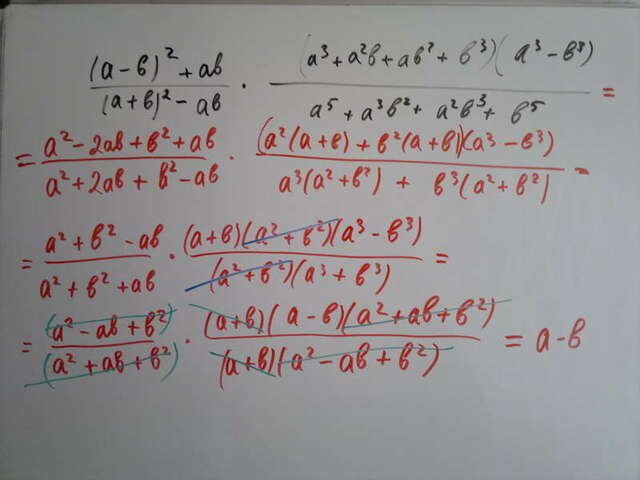 ((a-b)² + ab)/((a+b)² - ab) · ((a³ + a²b + ab² + b³)(a³ - b³))/(a⁵ + a³b² + a²b³ + b⁵) =
= (a² - 2ab + b² + ab)/(a² + 2ab + b² - ab) · ((a²(a+b) + b²(a+b))(a³ - b³))/(a³(a² + b²) + b³(a² + b²)) =
= (a² + b² - ab)/(a² + b² + ab) · ((a+b)(a² + b²)(a³ - b³))/((a² + b²)(a³ + b³)) =
= ((a² - ab + b²))/((a² + ab + b²)) · ((a+b)(a-b)(a² + ab + b²))/((a+b)(a² - ab + b²)) = a - b